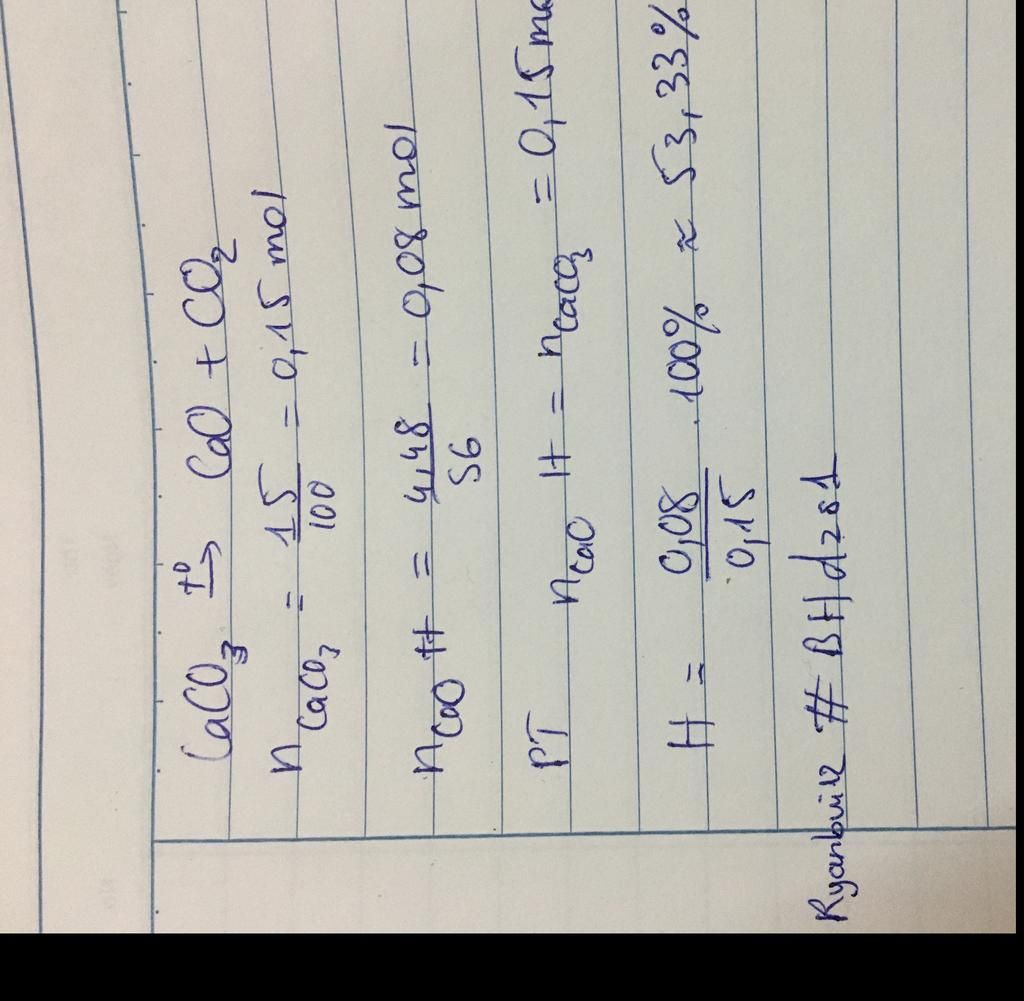 CaCO₃ t⁰→ CaO + CO₂
n CaCO₃ = 15/100 = 0,15 mol
n CaO tt = 4,48/56 = 0,08 mol
PT n CaO lt = n CaCO₃ = 0,15 mo
H = 0,08/0,15 . 100% ≈ 53,33%